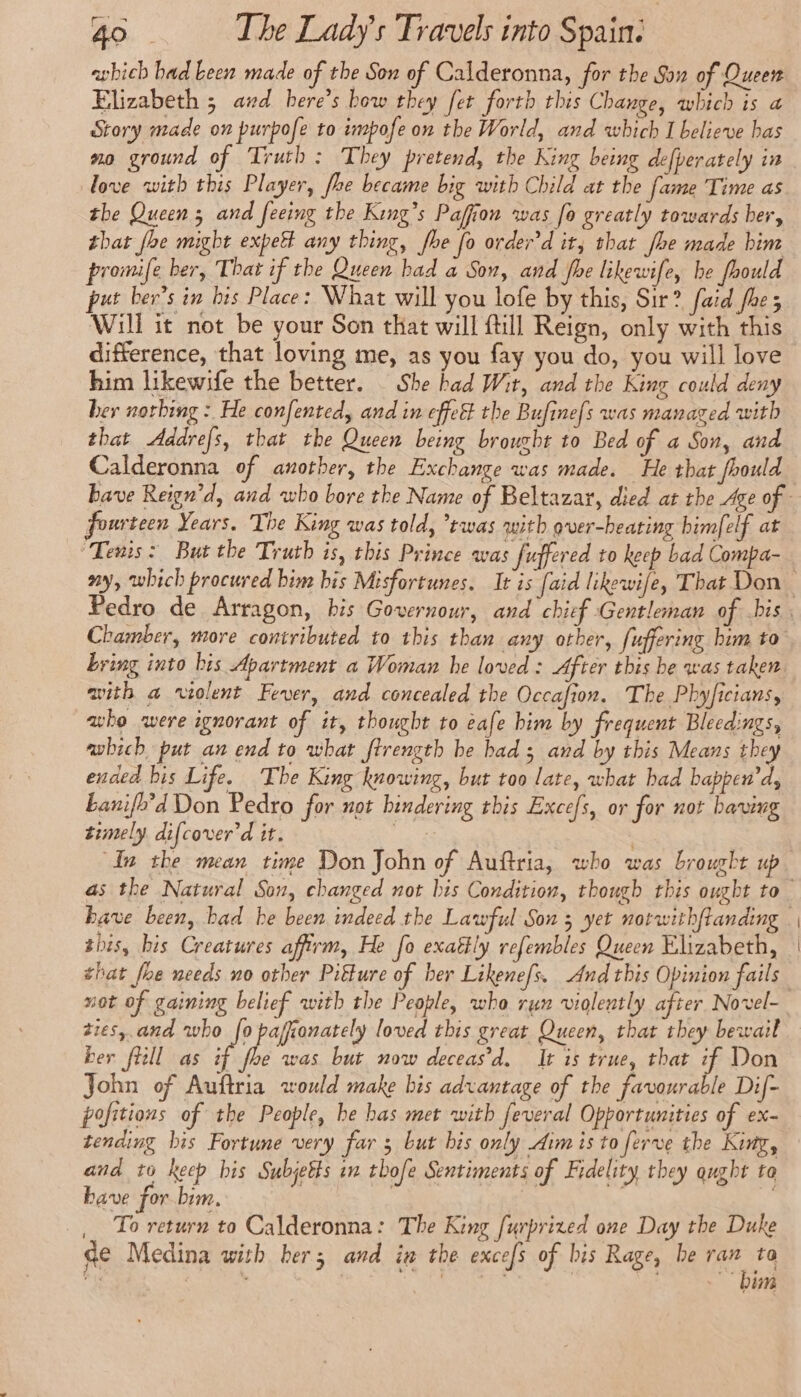 40 The Lady's Travels into Spain.
which had been made of the Son of Calderonna, for the Son of Queen
Elizabeth ; and here's how they ſet forth this Change, which is a
Story made on purpoſe to impoſe on the World, and which I believe has
no ground of Truth : They pretend, the King being deſperately in
love with this Player, ſhe became big with Child at the ſame Time as
the Queen ; and ſeeing the King's Paſſion was ſo greatly towards her,
that ſhe might expect any thing, ſhe ſo order'd it, that ſhe made him
promiſe her, That if the Queen had a Son, and ſhe likewiſe, he ſhould
put her's in his Place : What will you loſe by this, Sir? ſaid ſhe ;
Will it not be your Son that will ſtill Reign, only with this
difference, that loving me, as you ſay you do, you will love
him likewiſe the better. She had Wit, and the King could deny
her nothing : He conſented, and in effect the Buſineſs was managed with
that Addreſs, that the Queen being brought to Bed of a Son, and
Calderonna of another, the Exchange was made. He that ſhould
have Reign'd, and who bore the Name of Beltazar, died at the Age of
fourteen Years. The King was told, 'twas with over-heating himſelf at
Tenis : But the Truth is, this Prince was ſuffered to keep bad Compa-
ny, which procured him his Misfortunes. It is ſaid likewiſe, That Don
Pedro de Arragon, his Governour, and chief Gentleman of his
Chamber, more contributed to this than any other, ſuffering him to
bring into his Apartment a Woman he loved : After this he was taken
with a violent Fever, and concealed the Occaſion. The Phyſicians,
who were ignorant of it, thought to eaſe him by frequent Bleedings,
which put an end to what ſtrength he had ; and by this Means they
ended his Life. The King knowing, but too late, what had happen'd,
baniſh'd Don Pedro for not hindering this Exceſs, or for not having
timely diſcover'd it.
In the mean time Don John of Auſtria, who was brought up
as the Natural Son, changed not his Condition, though this ought to
have been, had he been indeed the Lawful Son ; yet notwithſtanding
this, his Creatures affirm, He ſo exactly reſembles Queen Elizabeth,
that ſhe needs no other Picture of her Likeneſs. And this Opinion fails
not of gaining belief with the People, who run violently after Novel-
ties, and who ſo paſſionately loved this great Queen, that they bewail
her ſtill as if ſhe was but now deceas'd. It is true, that if Don
John of Auſtria would make his advantage of the favourable Diſ-
poſitions of the People, he has met with ſeveral Opportunities of ex-
tending his Fortune very far ; but his only Aim is to ſerve the King,
and to keep his Subjects in thoſe Sentiments of Fidelity they ought to
have for him.
To return to Calderonna : The King ſurprized one Day the Duke
de Medina with her ; and in the exceſs of his Rage, he ran to
him